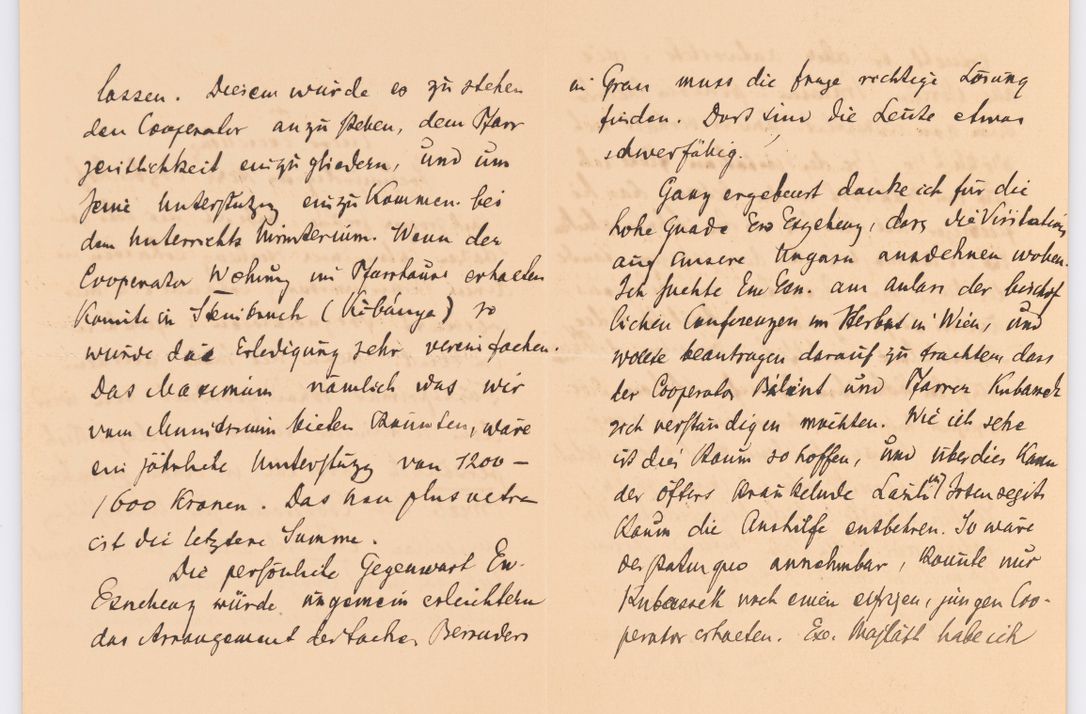 lassen. Diesem würde es zu stehen
den Cooperator anzustehen, dem Pfarr
geistlichkeit einzugliedern, und um
seine Unterstützg einzukommen bei
dem Unterrichts Ministerium. Wenn der
Cooperator Wohnung im Pfarrhause erhalten
könnte in Steinbruch (Köbánya) so
würde das Erledigung sehr vereinfachen.
Das Maximum nämlich was wir
vom Ministerium bieten könnten, wäre
ein jährliche Unterstützg von 1200 –
1600 Kronen. Das non plus ultra
ist die letztere Summe.
Die persönliche Gegenwart Ew.
Exc würde ungemein erleichtern
das Arrangement der Sache. Besonders
in Gran muss die frage richtige Lösung
finden. Dort sind die Leute etwas
schwerfällig.
Ganz ergebenst danke ich für die
hohe Gnade Ew , dass die Visitation
auf unsere Ungarn ausdehnen wollen.
Ich suchte Ew Exc. am anlass der bischöf
lichen Conferenzen im Herbst in Wien, und
wollte beantragen darauf zu trachten dass
der Cooperator Bálint und Pfarrer Kubassek
sich verständigen möchten. Wie ich sehe
ist dies kaum so hoffen, und überdies kann
der öfters kränkelnde
kaum die Aushilfe entbehren. So wäre
der status quo annehmbar, könnte nur
Kubassek noch einen eifrigen, jungen Coo-
perator erhalten. Exc. Majláth habe ich